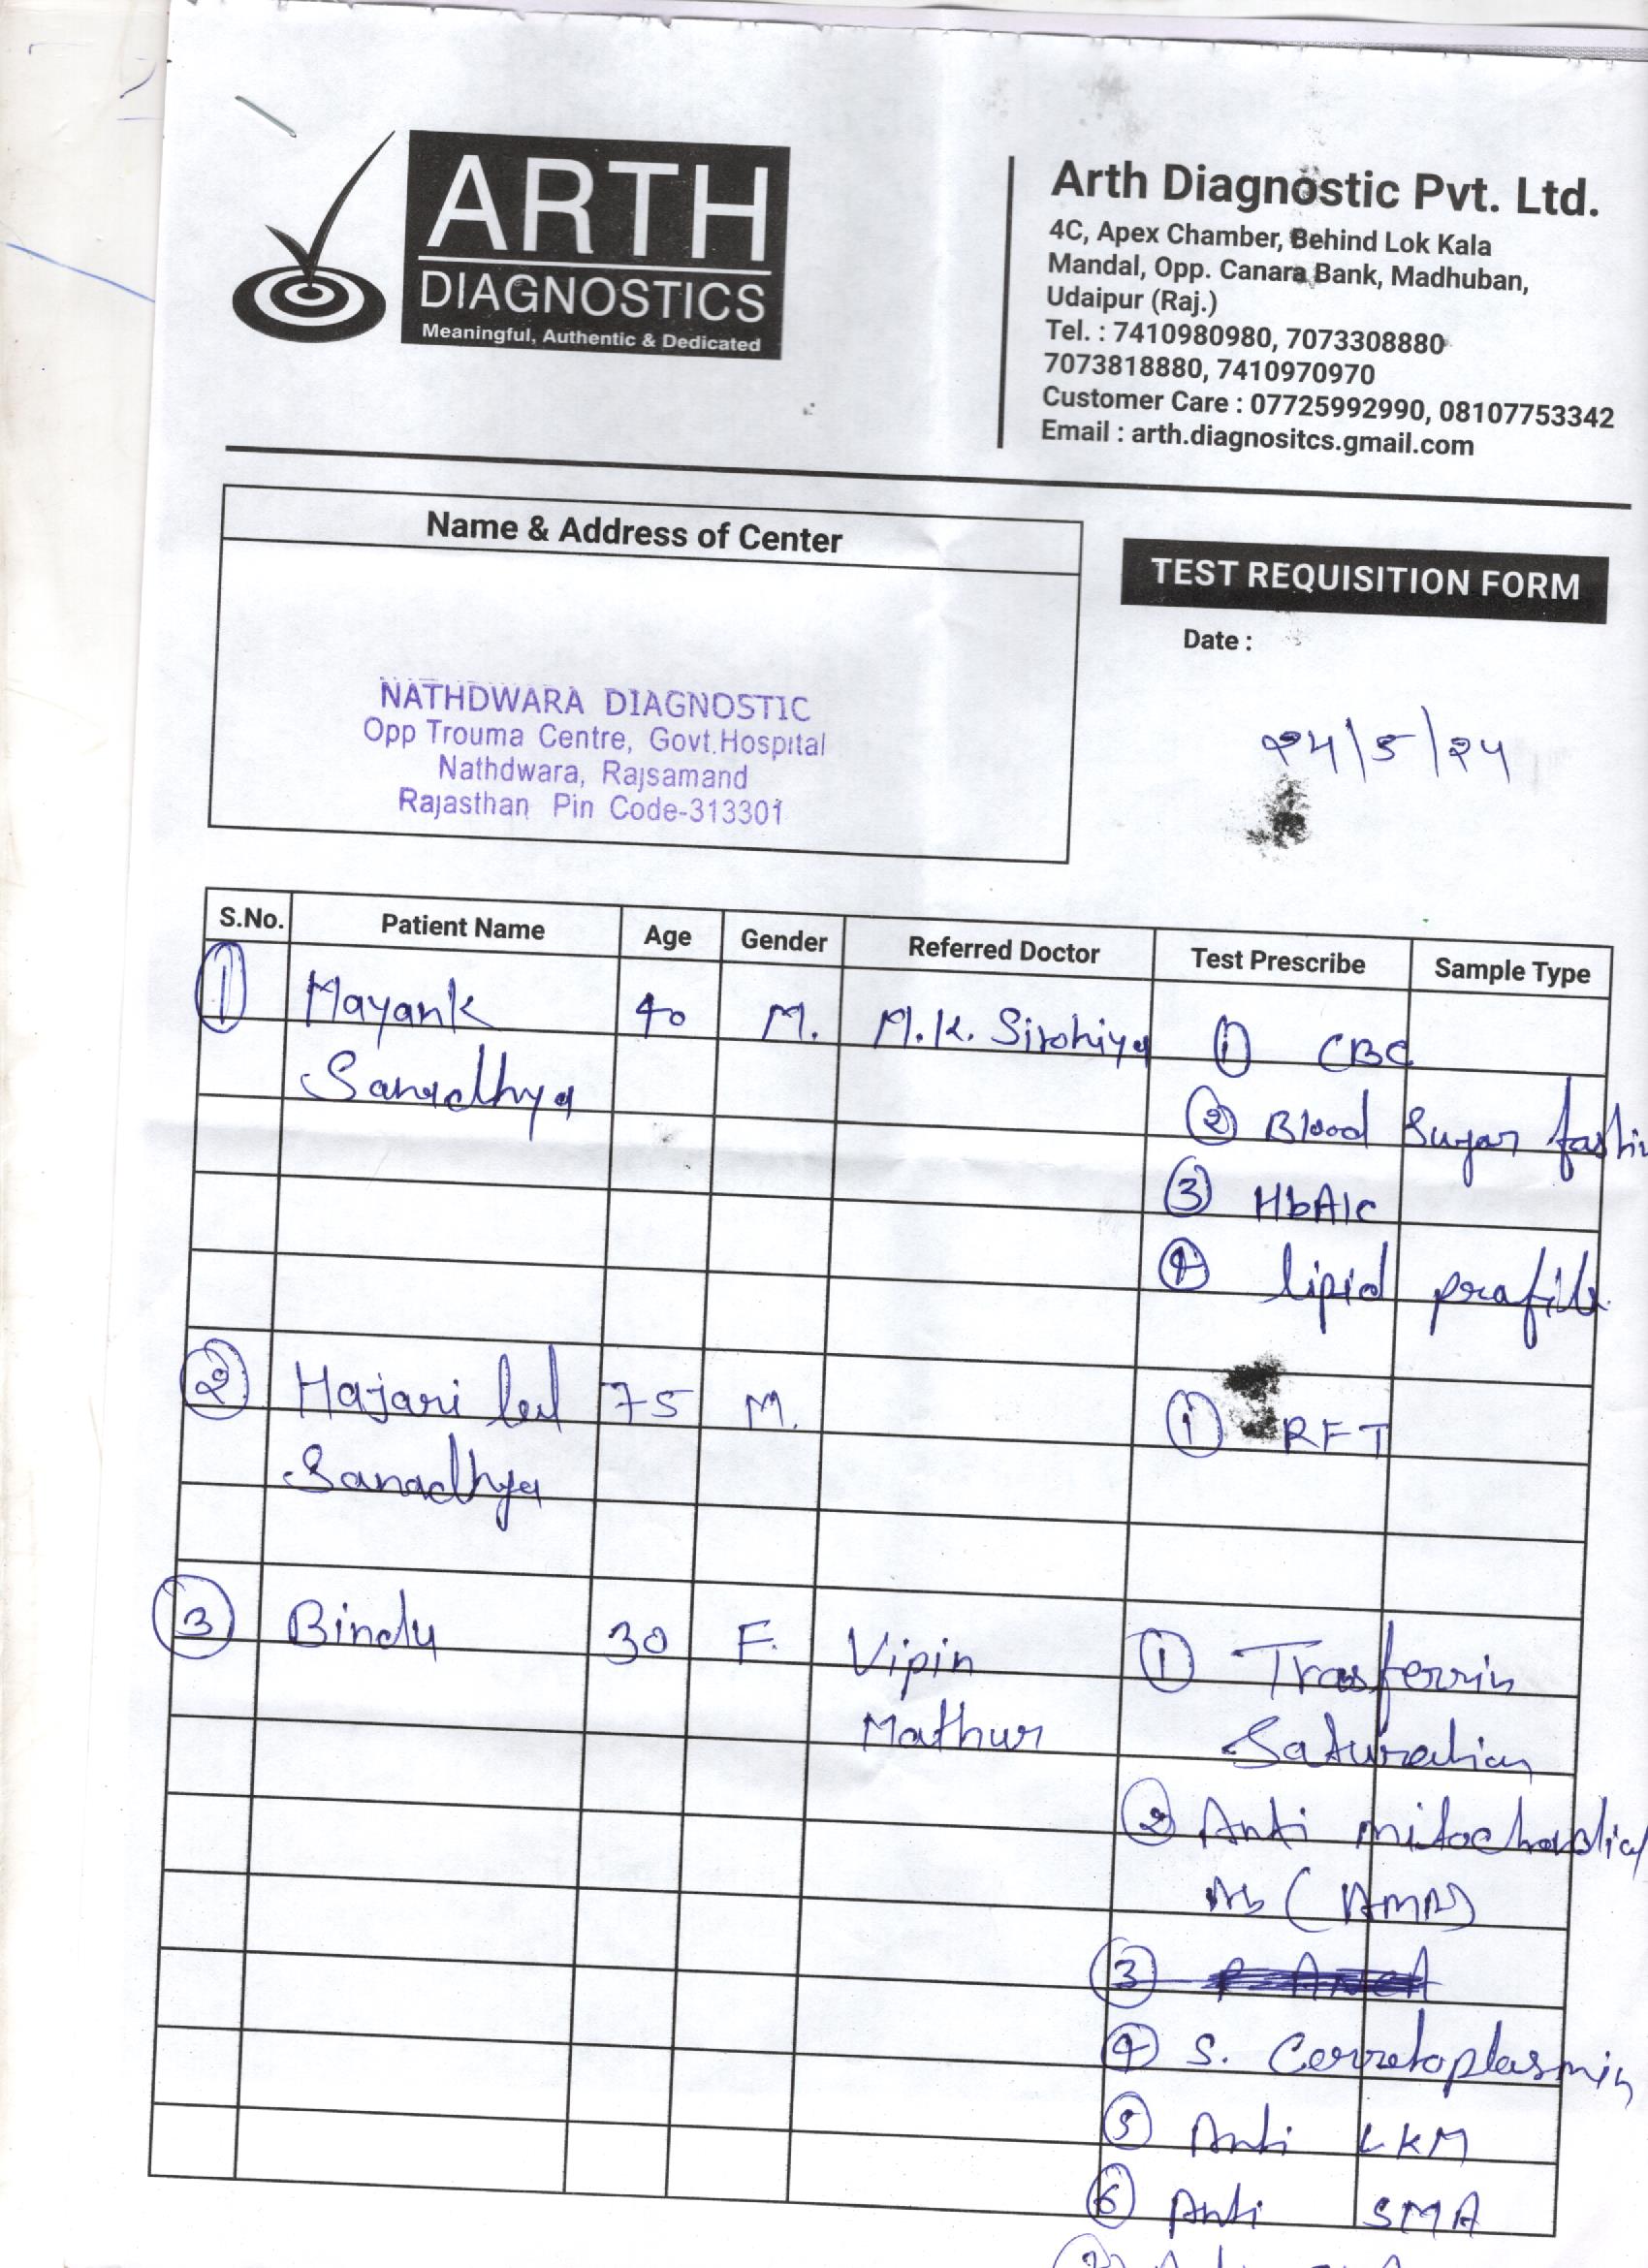 ARTH
DIAGNOSTICS
Meaningful, Authentic & Dedicated
Arth Diagnostic Pvt. Ltd.
4C, Apex Chamber, Behind Lok Kala
Mandal, Opp. Canara Bank, Madhuban,
Udaipur (Raj.)
Tel. : 7410980980, 7073308880
7073818880, 7410970970
Customer Care : 07725992990, 08107753342
Email : arth.diagnositcs.gmail.com
Name & Address of Center
NATHDWARA DIAGNOSTIC
Opp Trouma Centre, Govt.Hospital
Nathdwara, Rajsamand
Rajasthan Pin Code-313301
TEST REQUISITION FORM
Date :
24/5/24
S.No. Patient Name Age Gender Referred Doctor Test Prescribe Sample Type
1 Mayank 40 M. M.K. Sirohiya 1 CBC
Sanadhya
2 Blood Sugar fasti
3 HbA1c
4 lipid profile
2 Hajari lal 75 M. 1 RFT
Sanadhya
3 Bindu 30 F. Vipin 1 Trasferrin
Mathur Saturation
2 Anti mitochondial
Ab (AMA)
3
4 S. Cerretoplasmin
5 Anti LKM
6 Anti SMA